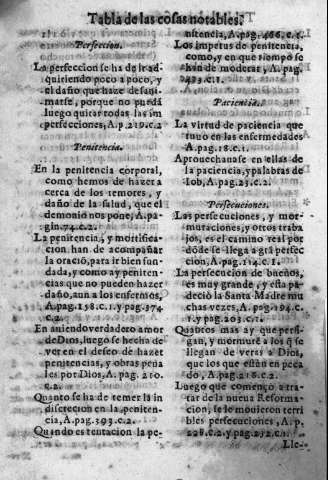 Tabla de las cosas notables.
Perfeccion.
La perfeccion se ha de ir ad-
quiriendo poco a poco, y
el daño que haze desani-
marse, porque no pueda
luego quitar todas las im
perfecciones, A. p. 219. c. 2
Penitencia.
En la penitencia corporal,
como hemos de hazer a
cerca de los temores, y
daño de la salud, que el
demonio nos pone, A. pa-
gin. 74. c. 2.
La penitencia, y mortifica-
cion han de acompañar
la oracio, para ir bien fun-
dada, y como ay peniten-
cias que no pueden hazer
daño, aun a los enfermos,
A. pag. 158. c. 1. y pag. 374
c. 2.
En auiendo verdadero amor
de Dios, luego se hecha de
ver en el deseo de hazer
penitencias, y obras pena
les por Dios, A. pag. 210.
c. 2.
Quanto se ha de temer la in
discrecion en la penitencia,
cia, A. pag. 393. c. 2.
Quando es tentacion la pe-
nitencia, A. pag. 466. c. 1.
Los impetus de penitencia,
como, y en que tiempo se
han de moderar, A. pag.
433. c. 1.
Paciencia.
La virtud de paciencia que
tuuo en las enfermedades
A. pag. 18. c. 1.
Aprouechauase en ellas de
la paciencia, y palabras de
Iob, A. pag. 23. c. 2.
Persecuciones.
Las persecuciones, y mor-
muraciones, y otros traba
jos, es el camino real por
dóde se llega a grá perfec
cion, A. pag. 114. c. 1.
La persecucion de buenos,
es muy grande, y esta pa-
deció la Santa Madre mu
chas vezes, A. pag. 194. c.
1. y pag. 203. c. 1.
Quátos mas ay que persi-
gan, y mormuré a los q̃ se
llegan de veras a Dios,
que los que estén en peca
do, A. pag. 218. c. 2.
Luego que començo a tra-
tar de la nueua Reforma-
cion, se le mouieron terri
bles persecuciones, A. p.
228. c. 2. y pag. 232. c. 1.
Lle-